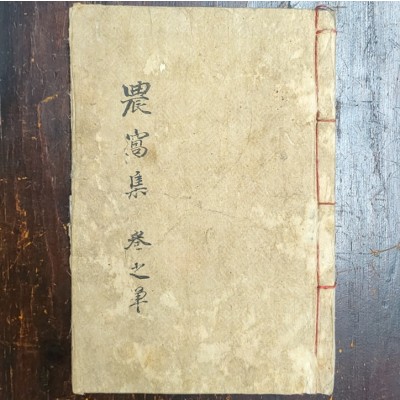 農窩集 卷之单